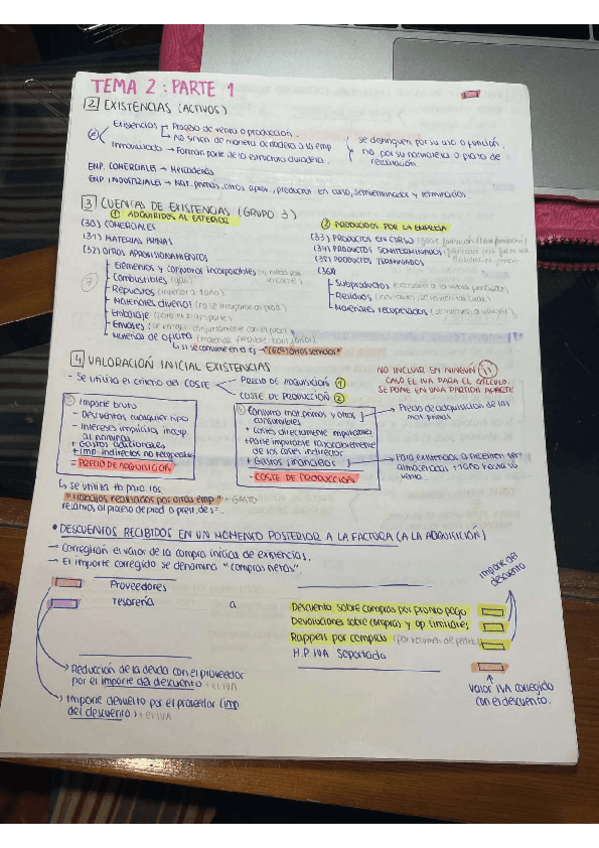 TEMA 2: PARTE 1
2 EXISTENCIAS (ACTIVOS)
Existencias
Proceso de venta o producción.
No sirven de manera duradera a la emp
Inmovilizado → Forman parte de la estructura duradera.
se distinguen por su uso o función,
no por su naturaleza o plazo de
realización
EMP. COMERCIALES → Mercaderías
EMP INDUSTRIALES → Mat. primas, otros aprov, productos en curso, semiterminados y terminados.
3 CUENTAS DE EXISTENCIAS (GRUPO 3)
① ADQUIRIDOS AL EXTERIOR
(30) COMERCIALES
(31) MATERIAS PRIMAS
(32) OTROS APROVISIONAMIENTOS
Elementos y conjuntos incorporables
Combustibles
Repuestos (inferior a 1 año)
Materiales diversos (no se incorporan al prod)
Embalaje
Envases
Material de oficina
si se consume en el ej → "(629) otros servicios"
② PRODUCIDOS POR LA EMPRESA
(33) PRODUCTOS EN CURSO
(34) PRODUCTOS SEMITERMINADOS
(35) PRODUCTOS TERMINADOS
(36)
Subproductos
Residuos
Materiales recuperados
4 VALORACIÓN INICIAL EXISTENCIAS
- Se utiliza el criterio del COSTE
PRECIO DE ADQUISICIÓN ①
COSTE DE PRODUCCIÓN ②
NO INCLUIR EN NINGÚN
CASO EL IVA PARA EL CÁLCULO.
SE PONE EN UNA PARTIDA APARTE
① Importe bruto
- Descuentos cualquier tipo
- Intereses implícitos, incorp.
al nominal
+ Gastos adicionales
+ Imp. indirectos no recuperables
= PRECIO DE ADQUISICIÓN
② Consumo mat. primas y otros
consumibles
+ Costes directamente imputables
+ Parte imputable razonablemente
de los costes indirectos
+ Gastos financieros
= COSTE DE PRODUCCIÓN
→ Precio de adquisición de las
mat. primas
→ Para existencias q necesiten ser
almacenadas +1 año hasta su
venta.
↳ se utiliza tb para los
"trabajos realizados por otras emp" → GASTO
relacionados al proceso de prod o prest. de s=.
• DESCUENTOS RECIBIDOS EN UN MOMENTO POSTERIOR A LA FACTURA (A LA ADQUISICIÓN)
→ Corregirán el valor de la compra inicial de existencias.
→ El importe corregido se denomina "compras netas".
Importe del
descuento
Proveedores
Tesorería a
Descuento sobre compras por pronto pago
Devoluciones sobre compras y op. similares
Rappels por compras
H.P. IVA Soportado
→ Reducción de la deuda con el proveedor
por el importe del descuento + el IVA
→ Importe devuelto por el proveedor (imp
del descuento) + el IVA
valor IVA corregido
con el descuento.